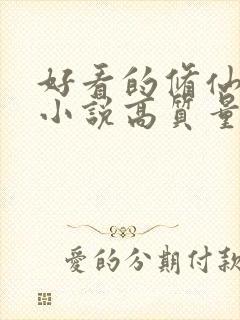 好看的脩仙
小說高質量
愛的分期付款